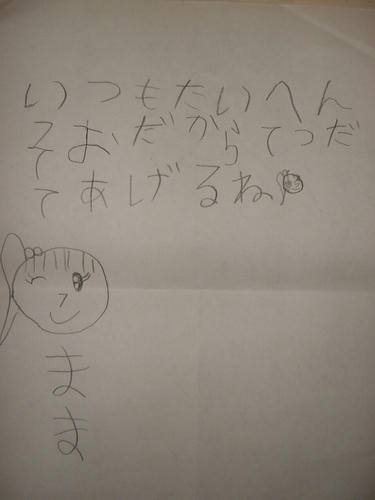 いつもたいへん
そおだからてつだ
てあげるね
まま